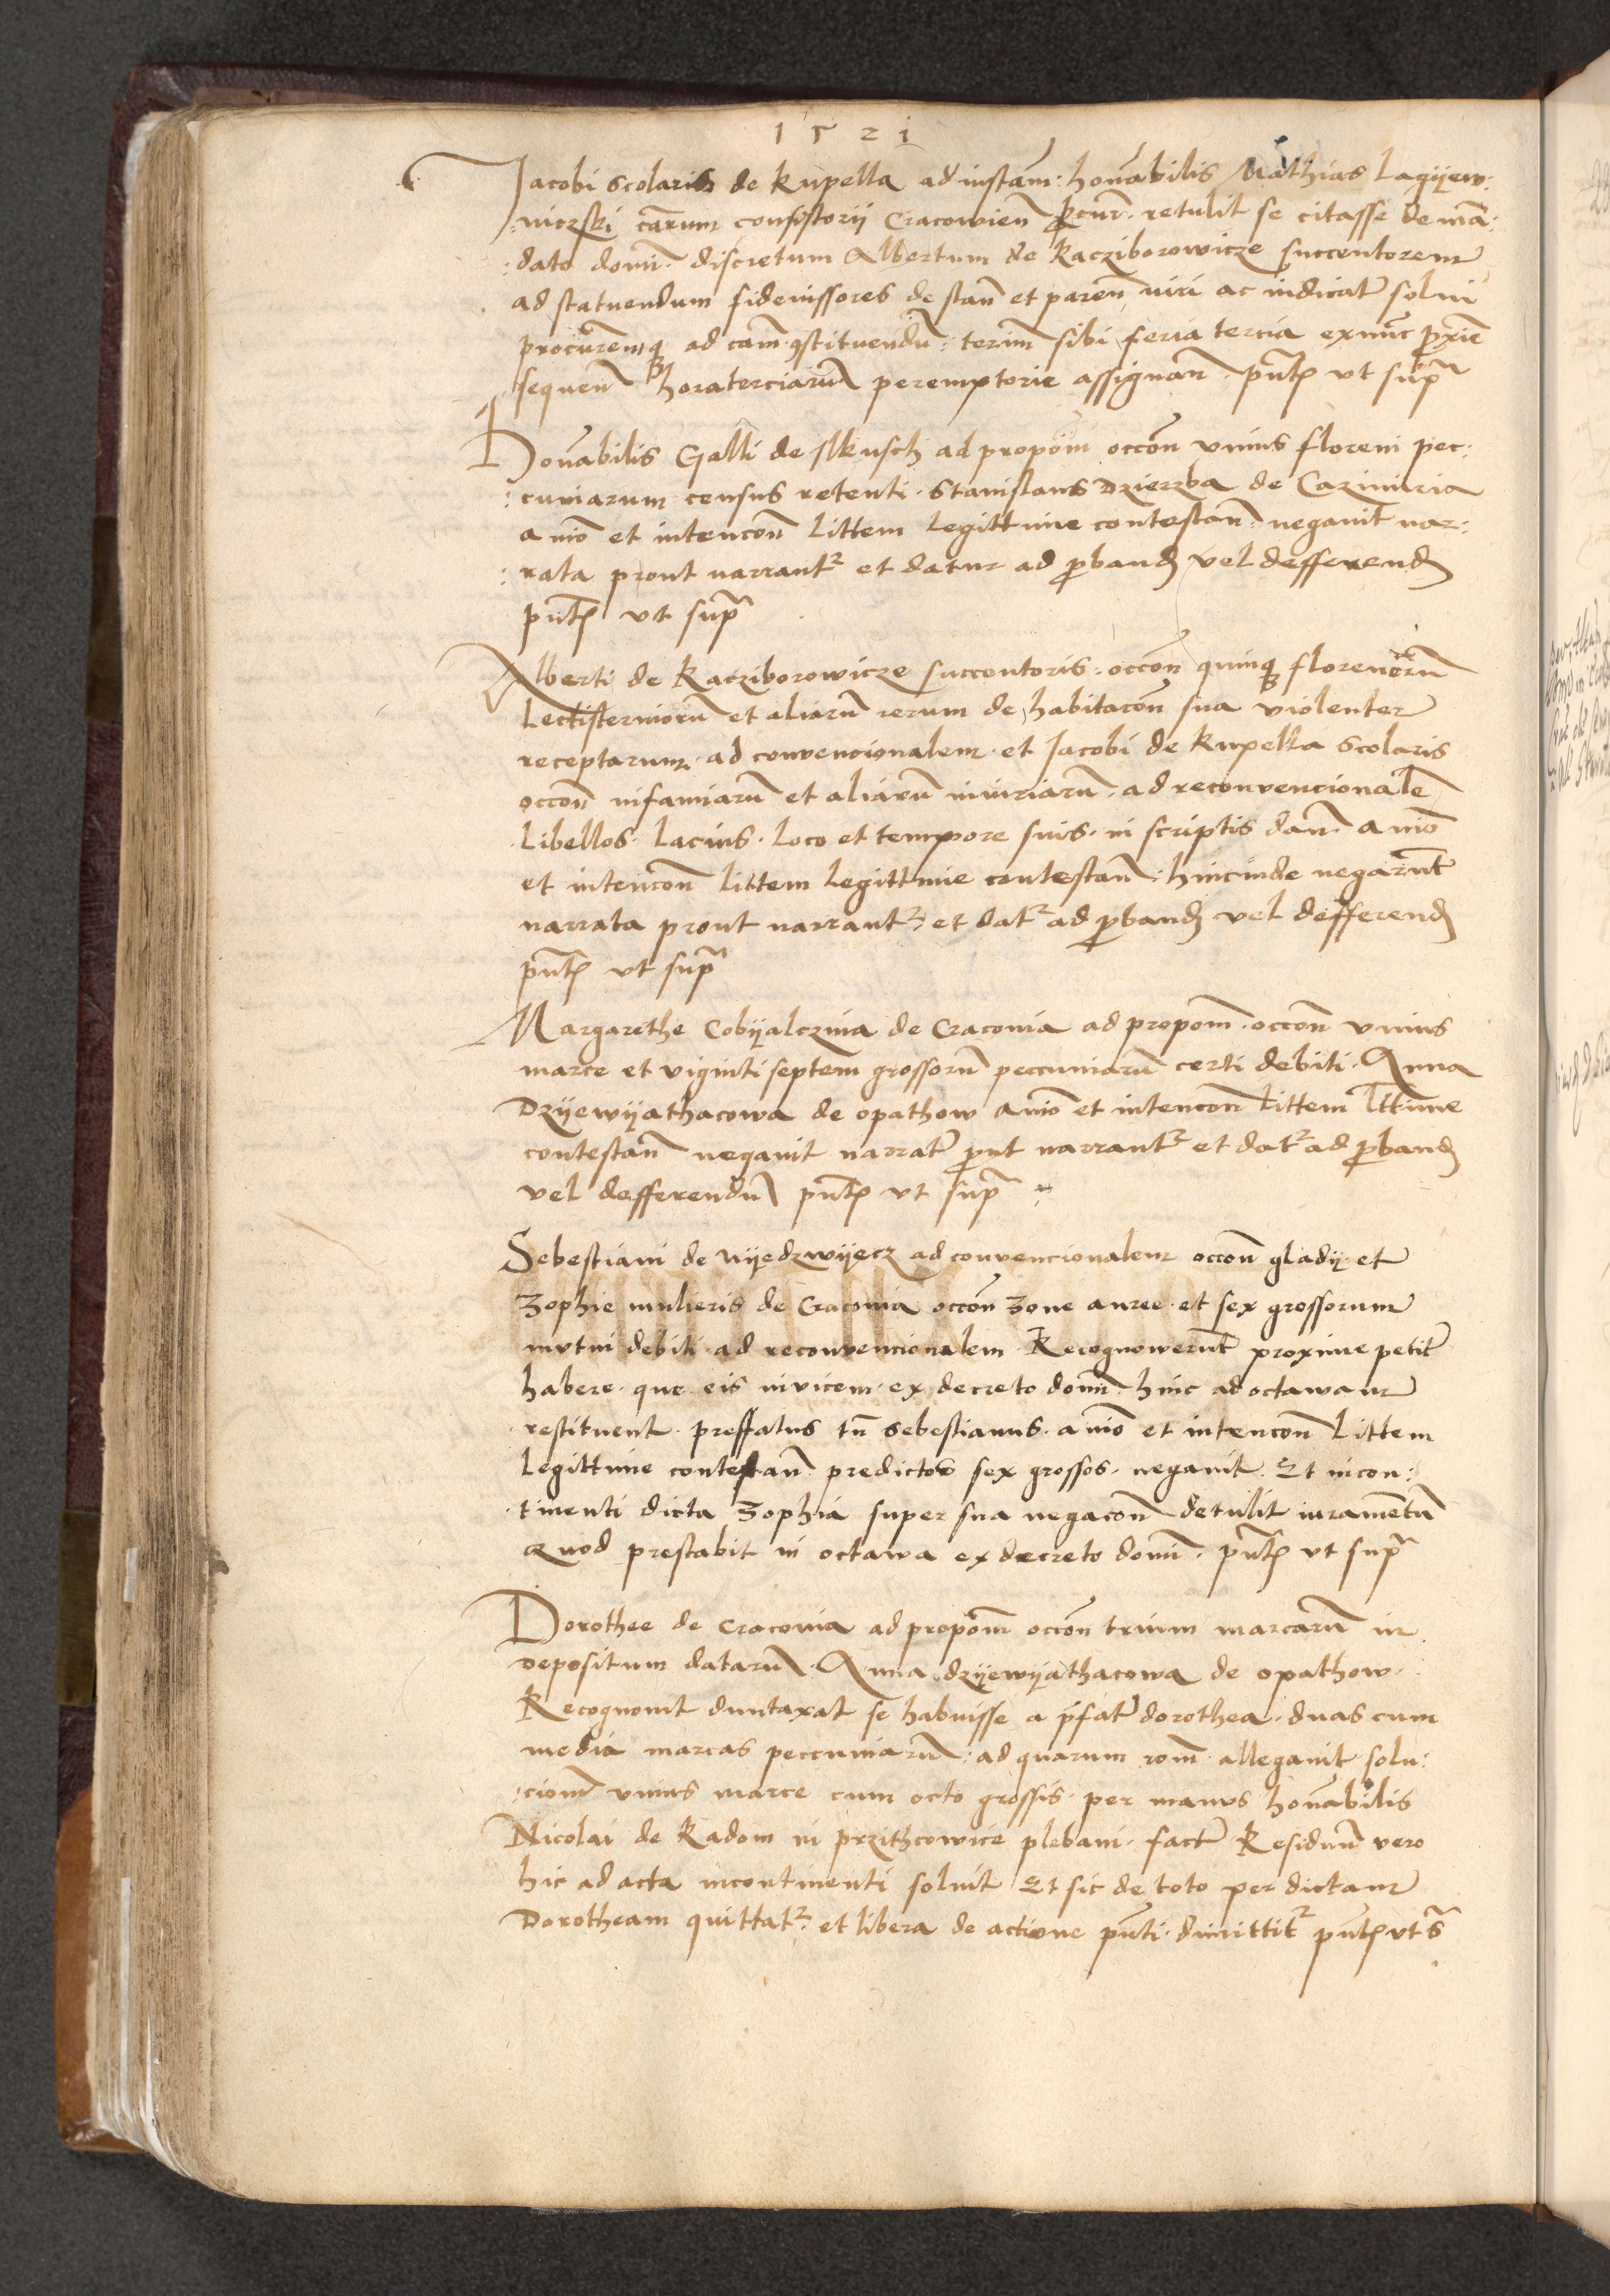 1521
Jacobi scolaris de kupella ad instam: honabilis Mathias Lagÿew:
:niczski carum consistorii Cracowien procur. retulit se citasse de ma:
:dato domi. discretum Albertum de kacziborowicze succentorem
ad statuendum fideiussores de stan et paren iuri ac iudicatum solui
procuremque ad cam constituendum: termi sibi feria tercia exnunc proxie
sequen hora terciarum peremptorie assignan. pntibus vt supra
Honabilis Galli de Ilkusch ad propom occon vnius floreni pec:
:cuniarum census retenti. Stanislaus Dzierzba de Cazimiria
anio et intencon littem legittime contestan. negauit nar:
:rata prout narrantur et datur ad proband vel defferend
pntibus vt supra
Alberti de kacziborowicze succentoris. occon quinque florenorum
Lectisterniorum et aliarum rerum de habitacon sua violenter
receptarum. ad convencionalem. et Jacobi de kupella scolaris
occon infamiarum et aliarum iniuriarum. ad reconvencionale
Libellos. lacius. loco et tempore suis. in scriptis dan. anio
et intencon littem legittimie contestan: hincinde negarunt
narrata prout narrantur, et datur ad proband vel defferend
pntibus vt supra
Margarethe Cobÿalczina de Cracouia ad propom. occon vnius
marce et viginti septem grossorum peccuniarum certi debiti. Anna
Dzÿewÿathacowa de opathow anio et intencon littem lttime
contestan negauit narrata prout narrantur et datur ad proband
vel defferendum pntibus vt supra
Sebestiani de Nÿedzwÿecz ad convencionalem occon gladÿ et
Zophie mulieris de Cracouia occon zone auree. et sex grossorum
mutui debiti. ad reconvencionalem. Recognowerunt proxime petita
habere. que eis invicem. ex decreto domi. hinc ad octawam
restituent. preffatus tn Sebestianus. anio et intencon littem
legittime contestan. predictos sex grossos. negauit. Et incon:
:tinenti dicta Zophia super sua negacon detulit iuramentum
Quod prestabit in octawa ex decreto domi. pntibus vt supra
Dorothee de Cracouia ad propom occon trium marcarum in
depositum datarum. Anna dzÿewÿathacowa de opathow.
Recognouit duntaxat se habuisse a prefata dorothea. duas cum
media marcas peccuniarum: ad quarum rom. allegauit solu:
:cionem vnius marce cum octo grossis. per manus honabilis
Nicolai de Radom in przithcowice plebani. factam Residuum vero
hic ad acta incontinenti soluit Et sic de toto per dictam
Dorotheam quittatur. et libera de actione pnti. dimittitur pntibus vt s